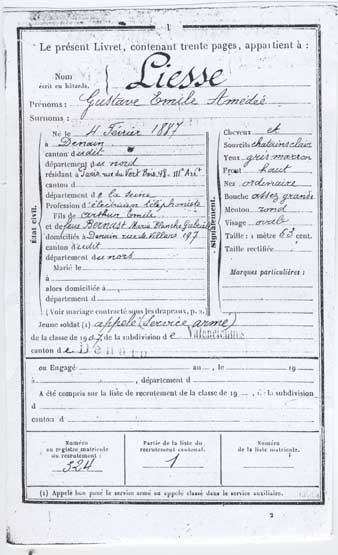 1
Le présent Livret, contenant trente pages, appartient à :
Nom
écrit en bâtarde, Liesse
Prénoms : Gustave Emile Amédée
Surnoms :
État civil.
Né le 4 Février 1887
à Denain
canton dudit
département du nord
résidant à Paris rue du Vert Bois 48. IIIe Art
canton d
département de la Seine
Profession d'électricien téléphoniste
Fils de Arthur Emile
et de feue Bernast Marie Blanche
domiciliés à Denain rue de Villars 197
canton dudit
département du nord
Marié le
à
alors domiciliée à
département d
(Voir mariage contracté sous les drapeaux, p. .)
Signalement.
Cheveux et
Sourcils chatains clair
Yeux gris marron
Front haut
Nez ordinaire
Bouche assez grande
Menton rond
Visage ovale
Taille : 1 mèt. 63 cent.
Taille rectifiée
Marques particulières :
Jeune soldat (1) appelé (Service armé)
de la classe de 1907, de la subdivision de Valenciennes
canton de Denain
ou Engagé au , le 19
à , département d
A été compris sur la liste de recrutement de la classe de 19 , de la subdivision
d
canton d
Numéro
au registre matricule
du recrutement :
324
Partie de la liste
du recrutement cantonal.
1
Numéro
de la liste matricule.
(1) Appelé bon pour le service armé ou appelé classé dans le service auxiliaire.
2